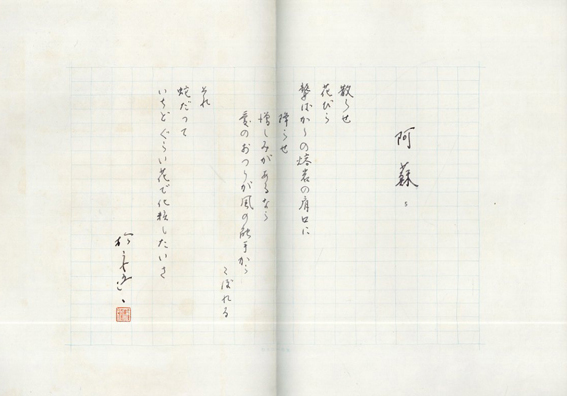 阿蘇
散らせ
花びら
撃ばかりの熔岩の肩口に
降らせ
憎しみがあるなら
愛のおつりが風の触手から
こぼれる
それ
蛇だって
いちどぐらい花で化粧したいさ